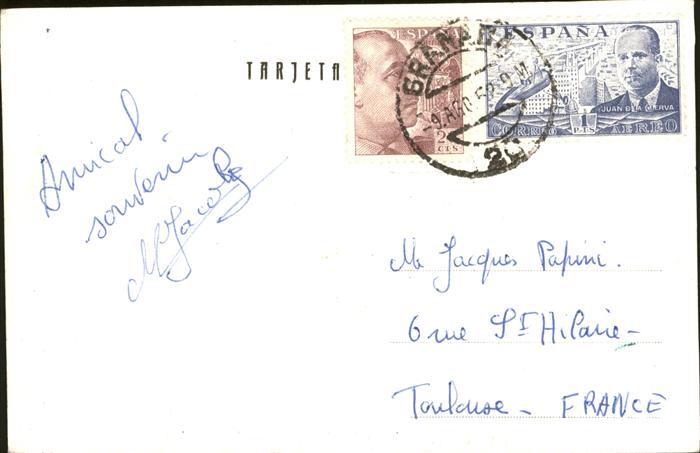 TARJETA
ESPAÑA
CTS
ESPAÑA
JUAN DE LA CIERVA
CORREO 1 PTS AEREO
GRANADA
Amical
souvenir
M Jacob
M. Jacques Papini.
6 rue St Hilaire -
Toulouse - FRANCE